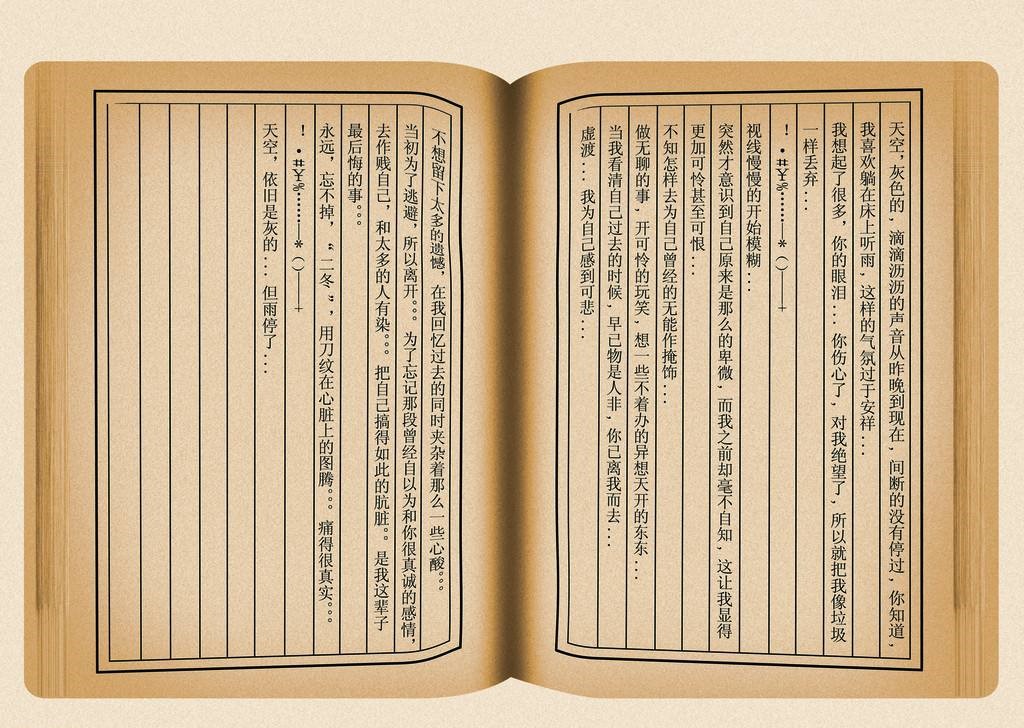 天空，灰色的，滴滴沥沥的声音从昨晚到现在，间断的没有停过，你知道，
我喜欢躺在床上听雨，这样的气氛过于安祥...
我想起了很多，你的眼泪...你伤心了，对我绝望了，所以就把我像垃圾
一样丢弃...
！·#￥%……—*（）——+
视线慢慢的开始模糊...
突然才意识到自己原来是那么的卑微，而我之前却毫不自知，这让我显得
更加可怜甚至可恨...
不知怎样去为自己曾经的无能作掩饰...
做无聊的事，开可怜的玩笑，想一些不着办的异想天开的东东...
当我看清自己过去的时候，早已物是人非，你已离我而去...
虚渡...我为自己感到可悲...
不想留下太多的遗憾，在我回忆过去的同时夹杂着那么一些心酸。。。
当初为了逃避，所以离开。。。为了忘记那段曾经自以为和你很真诚的感情，
去作贱自己，和太多的人有染。。。把自己搞得如此的肮脏。。是我这辈子
最后悔的事。。。
永远，忘不掉，“二冬”，用刀纹在心脏上的图腾。。。痛得很真实。。。
！·#￥%……—*（）——+
天空，依旧是灰的...但雨停了...